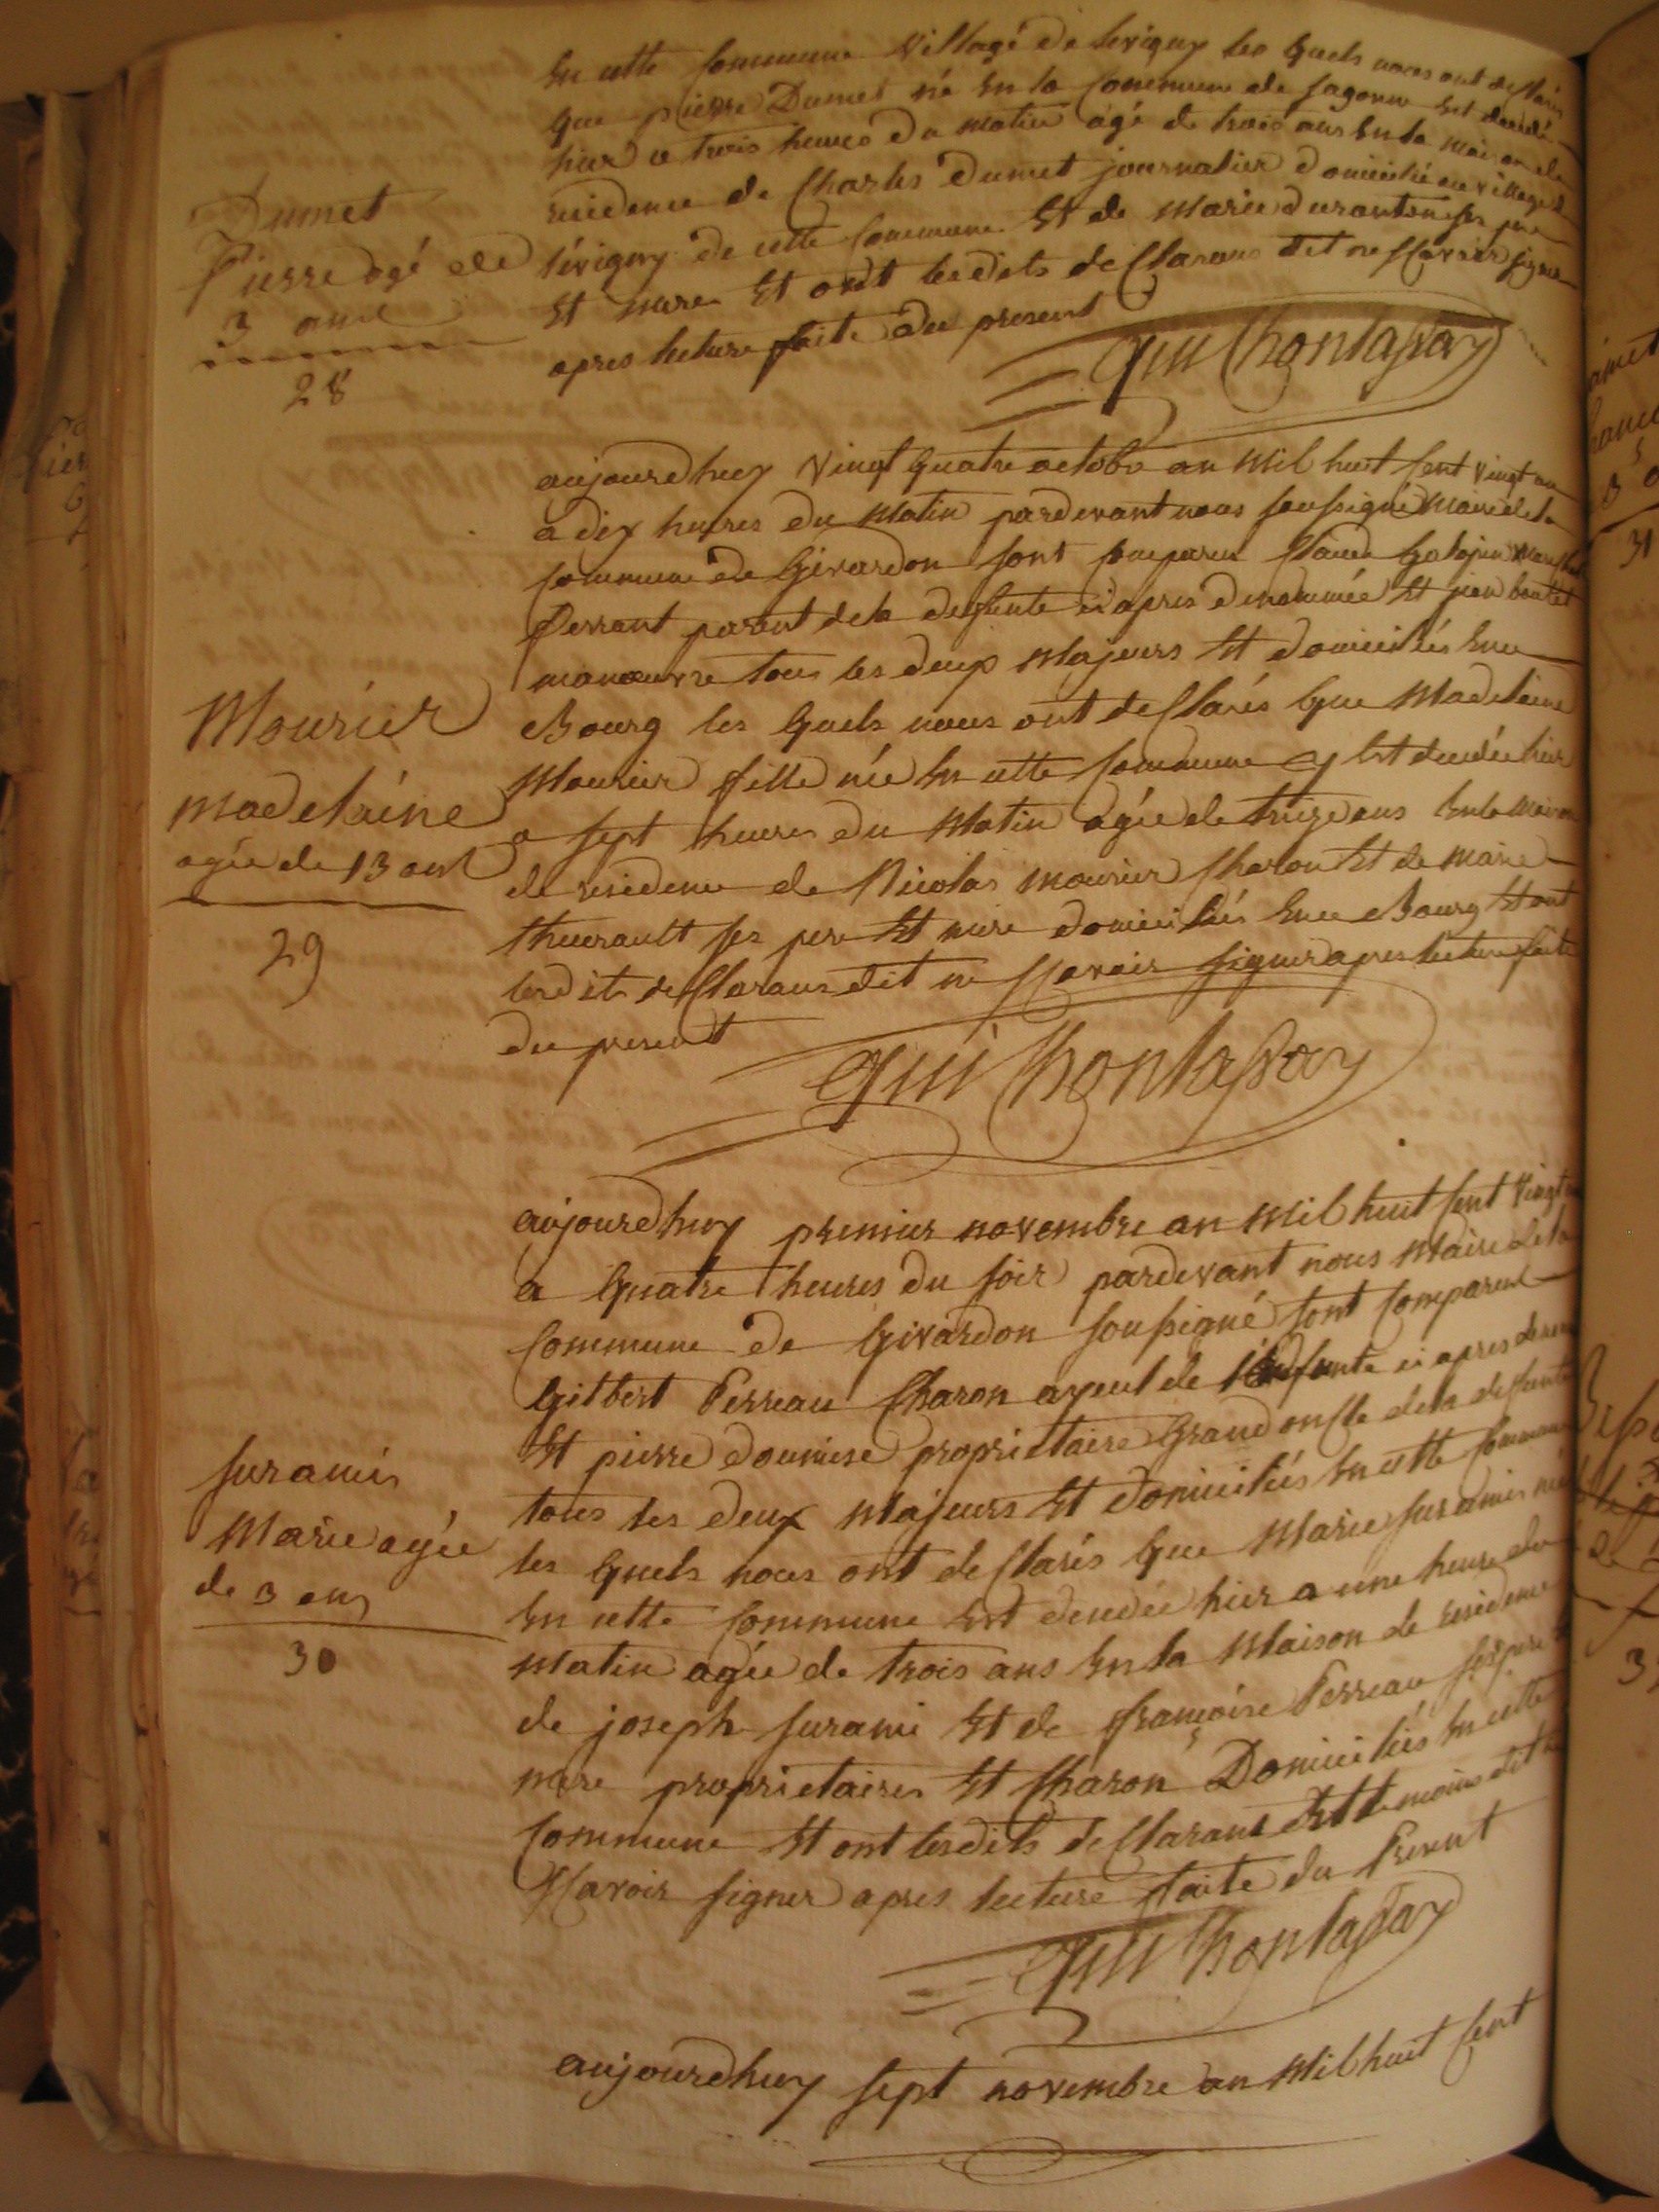 En cette Commune Village de Sevigny les quels nous ont desclarés
que pierre Dumet né En la Commune de sagonne Est decedé
hier a trois heures du matin agé de trois ans En la maison de
residence de Charles Dumet journalier domicilié au village de
sévigny de cette Commune Et de Marie duranton ses pere
Et mere Et ont lesdits desclarans dit ne sçavoir signer
apres lecture faite du present
Dumet
Pierre agé de
3 ans
28
aujourdhuy Vingt quatre octobre an Mil huit Cent Vingt un
a dix heures du Matin pardevant nous soussigné Maire de la
Commune de Givardon sont Comparu Claude
Ferrant parant de la deffunte ci apres denommée Et jean boutet
manoeuvre tous les deux Majeurs Et domiciliés En ce
Bourg les quels nous ont desclarés que Madelaine
Mourier fille née En cette Commune y Est decedée hier
a sept heures du Matin agée de treize ans En la Maison
de residence de Nicolas Mourier Charon Et de Marie
theurault ses pere Et mere domiciliés En ce Bourg Et ont
lesdits desclarans dit ne sçavoir signer apres lecture faite
du present
Mourier
Madelaine
agée de 13 ans
29
aujourdhuy premier novembre an Mil huit Cent Vingt un
a quatre heures du soir pardevant nous Maire de la
Commune de Givardon soussigné sont Comparus
Gilbert Perreau Charon ayeul de l'enfante ci apres denom
Et pierre doumise proprietaire Grand onscle de la deffunte
tous les deux Majeurs Et domiciliés En cette Commune
les quels nous ont desclarés que Marie suramis née
En cette Commune Est decedée hier a une heure du
Matin agée de trois ans En la Maison de residence
de joseph surami Et de françoise Perreau ses pere Et
mere proprietaires Et Charon Domiciliés En cette
Commune Et ont lesdits desclarans Et temoins dit ne
sçavoir signer apres lecture faite du Present
suramis
Marie agée
de 3 ans
30
aujourdhuy sept novembre an Mil huit Cent